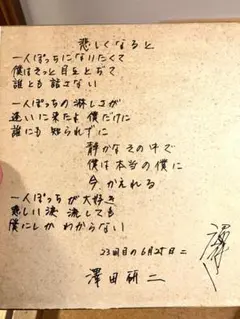 悲しくなると
一人ぼっちになりたくて
僕はそっと目をとじて
誰とも話さない
一人ぼっちの淋しさが
迎いに来たよ僕だけに
誰にも知られずに
静かなその中で
僕は本当の僕に
今かえれる
一人ぼっちが大好き
悲しい涙流しても
僕にしかわからない
23回目の6月25日ニ
澤田研二